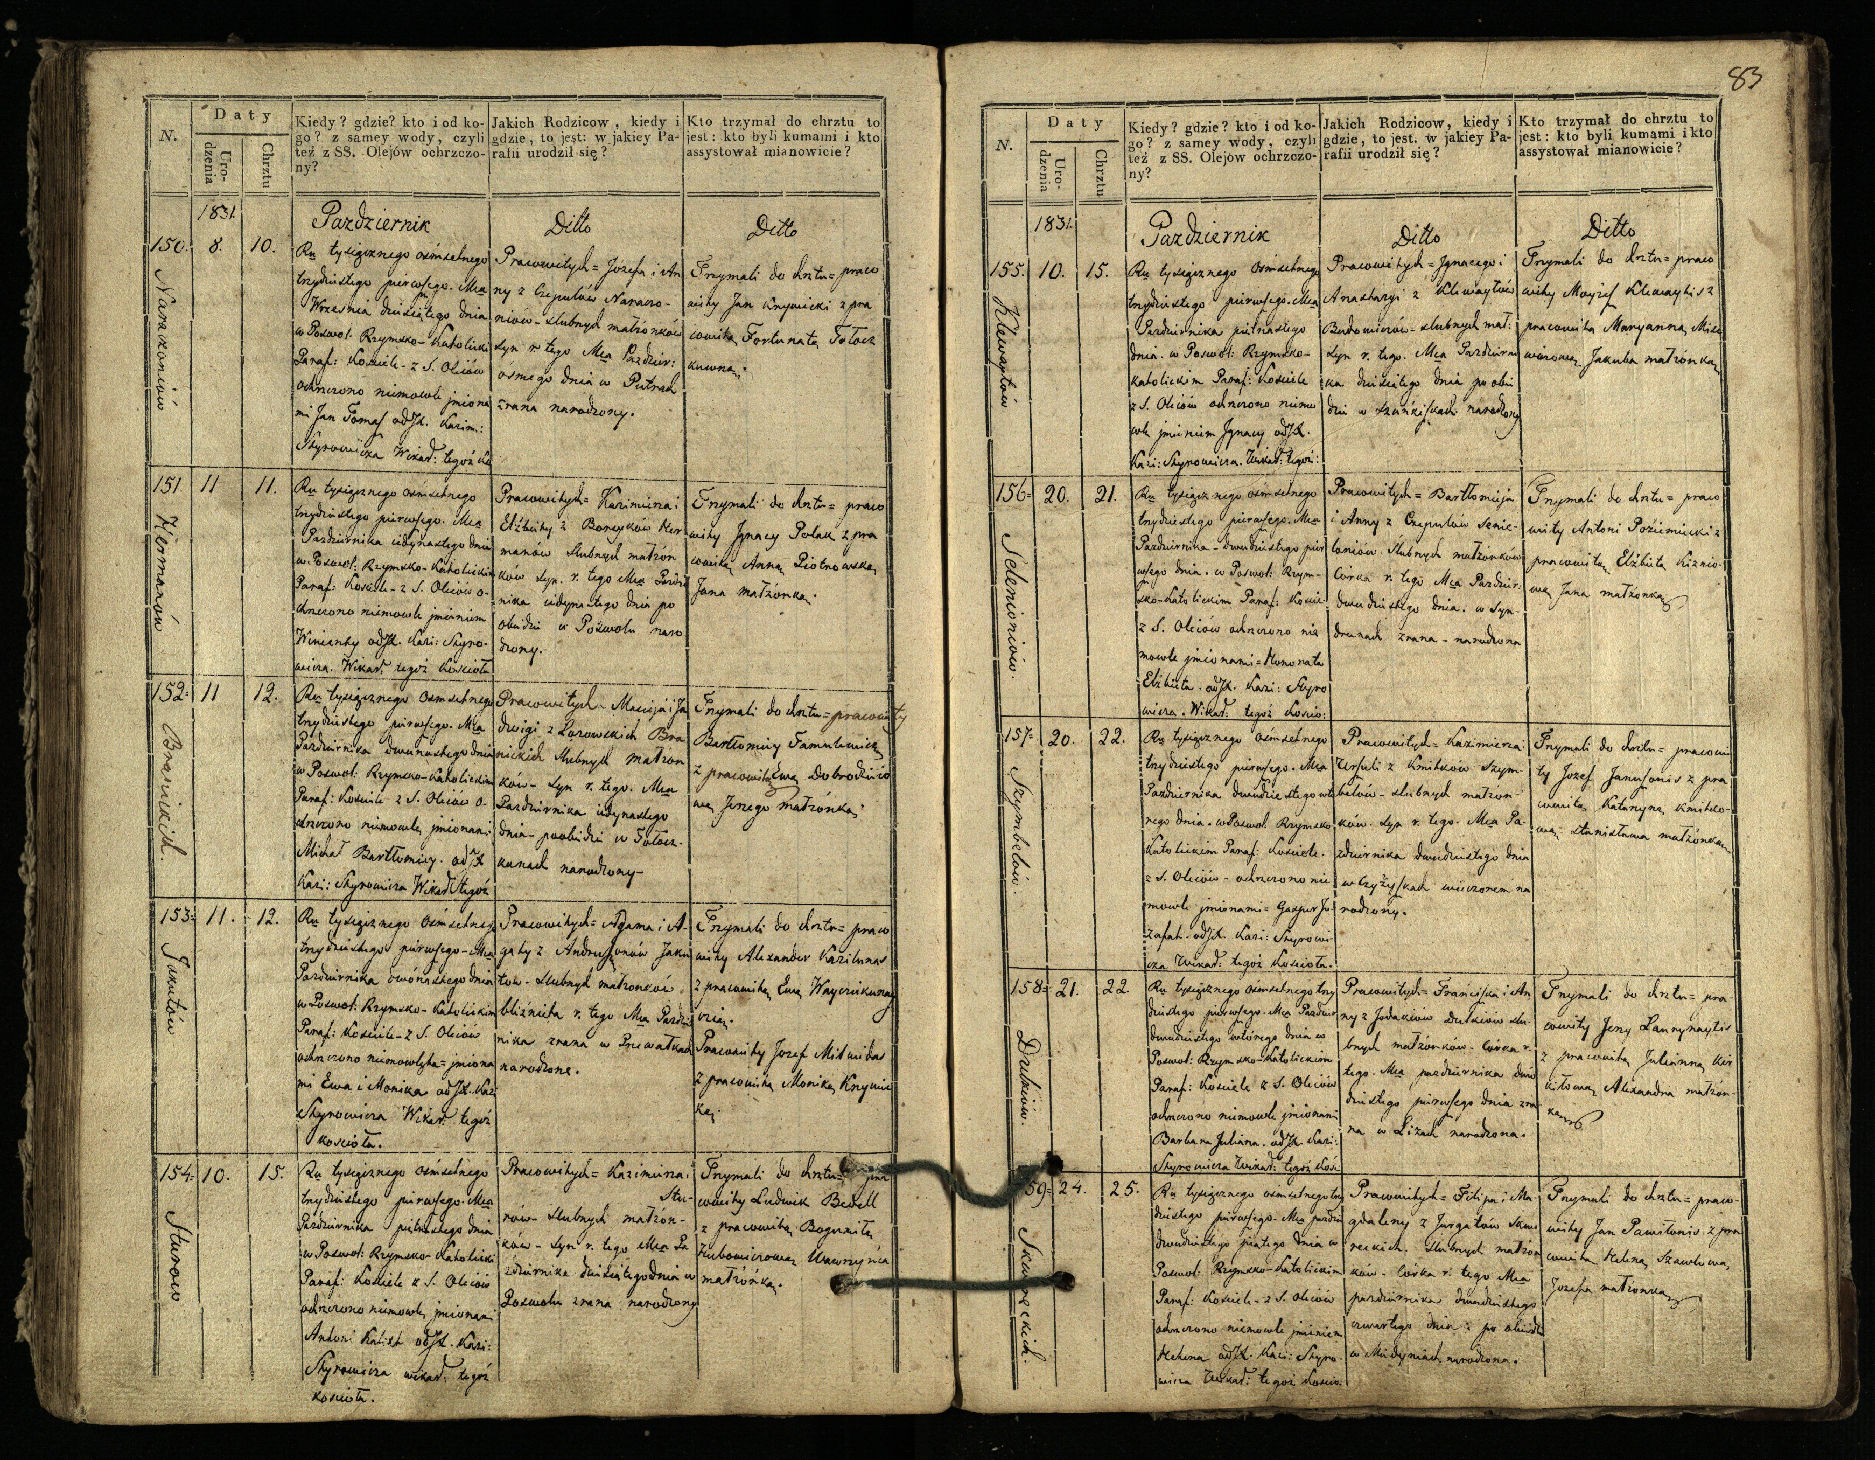 83
N.
Daty
Urodzenia
Chrztu
Kiedy? gdzie? kto i od ko-
go? z samey wody, czyli
też z SS. Olejów ochrzczo-
ny?
Jakich Rodzicow, kiedy i
gdzie, to jest: w jakiey Pa-
rafii urodził się?
Kto trzymał do chrztu to
jest: kto byli kumami i kto
assystował mianowicie?
1831.
Pazdziernik
Ditto
Ditto
150. 8. 10.
Narakoniów
Ru tysiącznego ośmsetnego
trzydziestego pierwszego. Mca
Września dziesiątego dnia
w Poswol: Rzymsko-Katolicki
Paraf: Kościele - z S. Oleiów
ochrzczono niemowlę jmiona
mi Jan Tomasz od JX. Kazim:
Skyrowicza Wikar: tegoż Ko
Pracowitych = Józefa i An
ny z Czepulów Narako-
niów - slubnych małżonków
syn r. tego Mca Pazdzier:
osmego dnia w Putrach
zrana narodzony.
Trzymali do chrztu = praco
wity Jan Knywicki z pra
cowitą Fortunatą Tołocz
kuwną.
151 11 11.
Hermanów
Ru tysiącznego ośmsetnego
trzydziestego pierwszego. Mca
Pazdziernika iedynastego dnia
w Poswol: Rzymsko-Katolickim
Paraf: Kościele - z S. Oleiów o-
chrzczono niemowle jmieniem
Wincenty od JX. Kazi: Skyro-
wicza. Wikar: tegoż Kościoła
Pracowitych = Kazimierza i
Elżbiety z Boreyków Her
manów slubnych małżon
ków syn. r. tego Mca Pazdzier
nika iedynastego dnia po
obiedzie w Poswolu naro
dzony.
Trzymali do chrztu = praco
wity Jgnacy Polak z pra
cowitą Anną Piotrowską
Jana małżonką.
152. 11 12.
Branickich.
Ru tysiącznego ośmsetnego
trzydziestego pierwszego. Mca
Pazdziernika dwunastego dnia
w Poswol: Rzymsko-Katolickim
Paraf: Kościele z S. Oleiów o-
chrzczono niemowlę jmionami
Michał Bartłomiey. od JX
Kazi: Skyrowicza Wikar: tegoż
Pracowitych = Macieja i Ja
dwigi z Łozowskich Bra
nickich slubnych małżon
ków - syn r. tego. Mca
Pazdziernika iedynastego
dnia - poobiedzie w Tołocz-
kunach narodzony -
Trzymali do chrztu = pracowity
Bartłomiey Tamulewicz
z pracowitą Ewą Dobrodzieio
wą Jerzego małżonką.
153. 11. 12.
Jakutów
Ru tysiącznego ośmsetnego
trzydziestego pierwszego - Mca
Pazdziernika dwónastego dnia
w Poswol: Rzymsko-Katolickim
Paraf: Kościele - z S. Oleiów
ochrzczono niemowlęta = jmiona
mi Ewa i Monika od JX. Kazi
Skyrowicza Wikar: tegoż
Kościoła.
Pracowitych = Adama i A-
gaty z Andruszonów Jaku
tów - slubnych małżonków.
bliźnięta r. tego Mca Pazdzier
nika zrana w Przewałkach
narodzone.
Trzymali do chrztu = praco
wity Alexander Kazilunas
z pracowitą Ewą
Pracowity Jozef Mitwidas
z pracowitą Moniką Knywic
ką.
154. 10. 15.
Sturów
Ru tysiącznego ośmsetnego
trzydziestego pierwszego. Mca
Pazdziernika piętnastego dnia
w Poswol: Rzymsko-Katolicki
Paraf: Kościele z S. Oleiów
ochrzczono niemowlę jmionami
Antoni Kalixt od JX. Kazi:
Skyrowicza wikar: tegoż
kościoła.
Pracowitych = Kazimierza i
Stu-
rów - slubnych małżon-
ków - syn r. tego Mca Pa
zdziernika dziesiątego dnia w
Poswolu zrana narodzony
Trzymali do chrztu = pra
cowity Ludwik Bedell
z pracowitą Bogumiłą
Zubowiczową Wawrzyńca
małżonką.
N.
Daty
Urodzenia
Chrztu
Kiedy? gdzie? kto i od ko-
go? z samey wody, czyli
też z SS. Olejów ochrzczo-
ny?
Jakich Rodzicow, kiedy i
gdzie, to jest: w jakiey Pa-
rafii urodził się?
Kto trzymał do chrztu to
jest: kto byli kumami i kto
assystował mianowicie?
1831.
Pazdziernik
Ditto
Ditto
155. 10. 15.
Klewaytów
Ru tysiącznego ośmsetnego
trzydziestego pierwszego. Mca
Pazdziernika piętnastego
dnia. w Poswol: Rzymsko-
katolickim Paraf: Kościele
z S. Oleiów ochrzczono niemo
wlę jmieniem Jgnacy od JX.
Kazi: Skyrowicza. Wikar: tegoż:
Pracowitych = Jgnacego i
Anastazyi z Klewaytów
Butowiczów - slubnych mał:
syn r. tego. Mca Pazdzierni
ka dziesiątego dnia po obie
dzie w narodzony
Trzymali do chrztu = praco
wity Moyżesz Klewaytis z
pracowitą Maryanną
Jakuba małżonką
156. 20. 21.
Selenioniów.
Ru tysiącznego ośmsetnego
trzydziestego pierwszego. Mca
Pazdziernika - dwudziestego pier
wszego dnia. w Poswol: Rzym-
sko-Katolickim Paraf: Kościel
z S. Oleiów ochrzczono nie
mowle jmionami = Honorata
Elżbieta. od JX. Kazi: Skyro
wicza. Wikar: tegoż Kościo:
Pracowitych = Bartłomieja
i Anny z Czepulów Sele-
loniów slubnych małżonków
Corka r. tego Mca Pazdzier.
dwudziestego dnia. w Syn-
drunach zrana - narodzona
Trzymali do chrztu = praco
wity Antoni Poziemicki z
pracowitą Elżbietą Kiznio
wą Jana małżonką
157. 20. 22.
Szymbelów.
Ru tysiącznego ośmsetnego
trzydziestego pierwszego. Mca
Pazdziernika dwudziestego wtó
rnego dnia. w Poswol: Rzymsko
Katolickim Paraf: Kościele.
z S. Oleiów - ochrzczono nie
mowle jmionami = Gaspar Jo-
zafat. od JX. Kazi: Skyrowi-
cza Wikar: tegoż Kościoła.
Pracowitych = Kazimierza
Urszuli z Kmitkow Szym-
belów - slubnych małżon-
ków. syn r. tego. Mca Pa-
zdziernika dwudziestego dnia
w wieczorem na
rodzony.
Trzymali do chrztu = pracowi
ty Jozef Januszonis z pra
cowitą Katarzyną Kmitko-
wą Stanisława małżonką
158. 21. 22.
Dulków.
Ru tysiącznego ośmsetnego trzy
dziestego pierwszego. Mca Pazdzier
dwudziestego wtórego dnia w
Poswol: Rzymsko-Katolickim
Paraf: Kościele z S. Oleiów
ochrzczono niemowle jmionami
Barbara Juliana. od JX. Kazi:
Skyrowicza Wikar: tegoż Koś:
Pracowitych = Franciszka i An
ny z Jodakiów Dulkiów slu-
bnych małżonków. Corka r.
tego. Mca pazdziernika dwu
dziestego pierwszego dnia zra
na w Liżach narodzona.
Trzymali do chrztu = pra
cowity Jerzy Laurynaytis
z pracowitą Julianną Kir
kiłową Alexandra małżon-
ką
159. 24. 25.
Skureckich.
Ru tysiącznego ośmsetnego trzy
dziestego pierwszego. Mca pazdzie
dwudziestego piątego dnia w
Poswol: Rzymsko-Katolickim
Paraf: Kościele - z S. Oleiów
ochrzczono niemowle jmieniem
Helena od JX. Kazi: Skyro-
wicza Wikar: tegoż Kościo:
Pracowitych = Filipa i Ma
gdaleny z Jurgatów Skure
reckich. slubnych małżon
ków - Corka r. tego Mca
pazdziernika dwudziestego
czwartego dnia: po obiedzie
w narodzona.
Trzymali do chrztu = praco-
wity Jan Pawilonis z pra
cowitą Heleną Szawłową
Jozefa małżonką